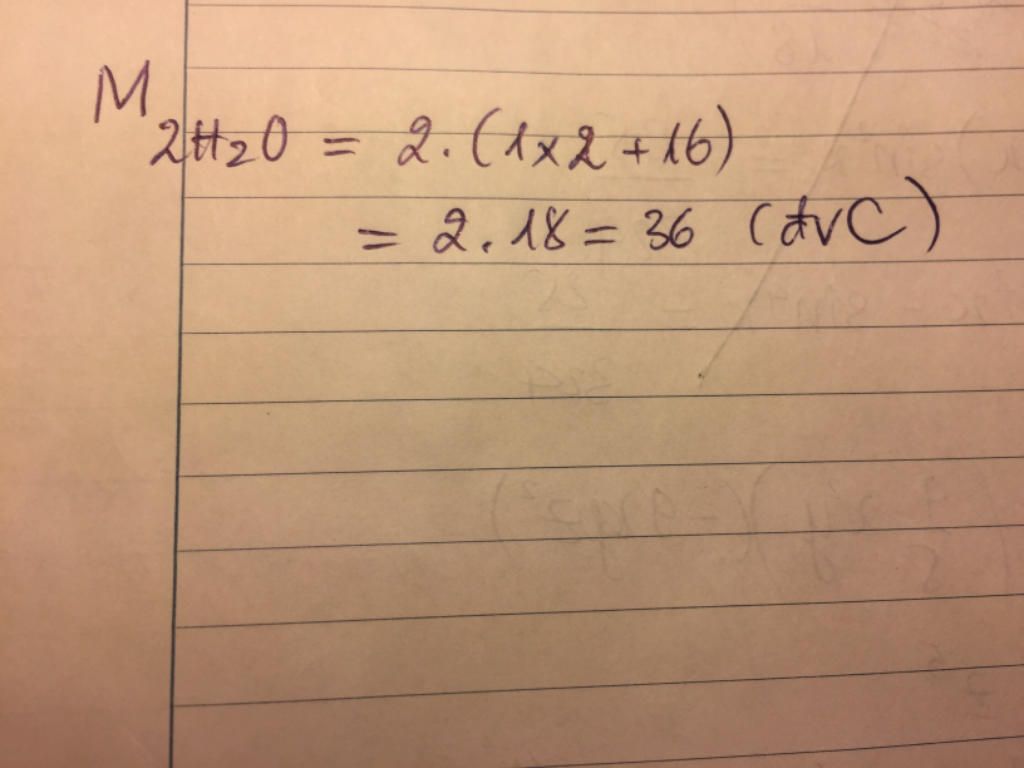 M 2H₂O = 2.(1x2+16)
= 2.18 = 36 (đvC)